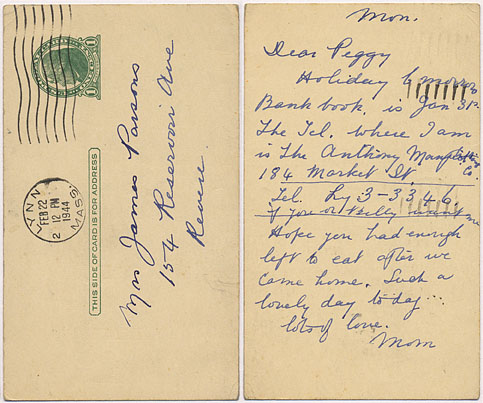 1
1
LYNN
FEB 22
2 12 PM
1944
MASS.
THIS SIDE OF CARD IS FOR ADDRESS
Mrs James Parsons
154 Reservoir Ave
Revere.
Mon.
Dear Peggy
Holiday
Bank book. is Jan 31st
The Tel. where I am
is The Anthony Co.
184 Market St
Tel. Ly 3-3346
if you or want me
Hope you had enough
left to eat after we
came home. Such a
lovely day to day...
lots of love.
Mom